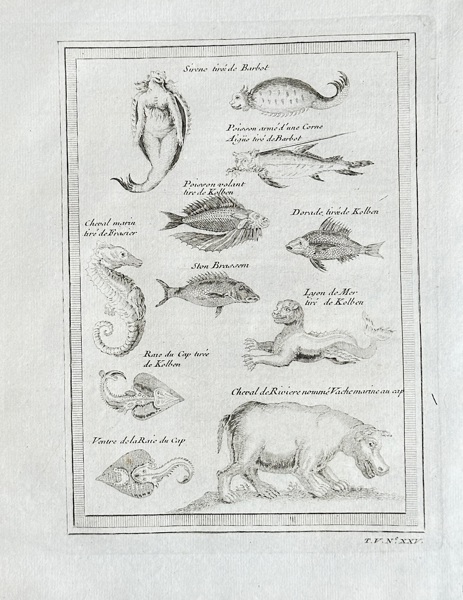 Sirene tiré de Barbot
Poisson armé d'une Corne
Aigue tiré de Barbot
Poisson volant
tiré de Kolben
Dorade, tirée de Kolben
Cheval marin
tiré de Frasier
Ston Brassem
Lyon de Mer
tiré de Kolben
Raie du Cap tirée
de Kolben
Cheval de Riviere nommé Vache marine au cap
Ventre de la Raie du Cap
T. V. N.º XXV.